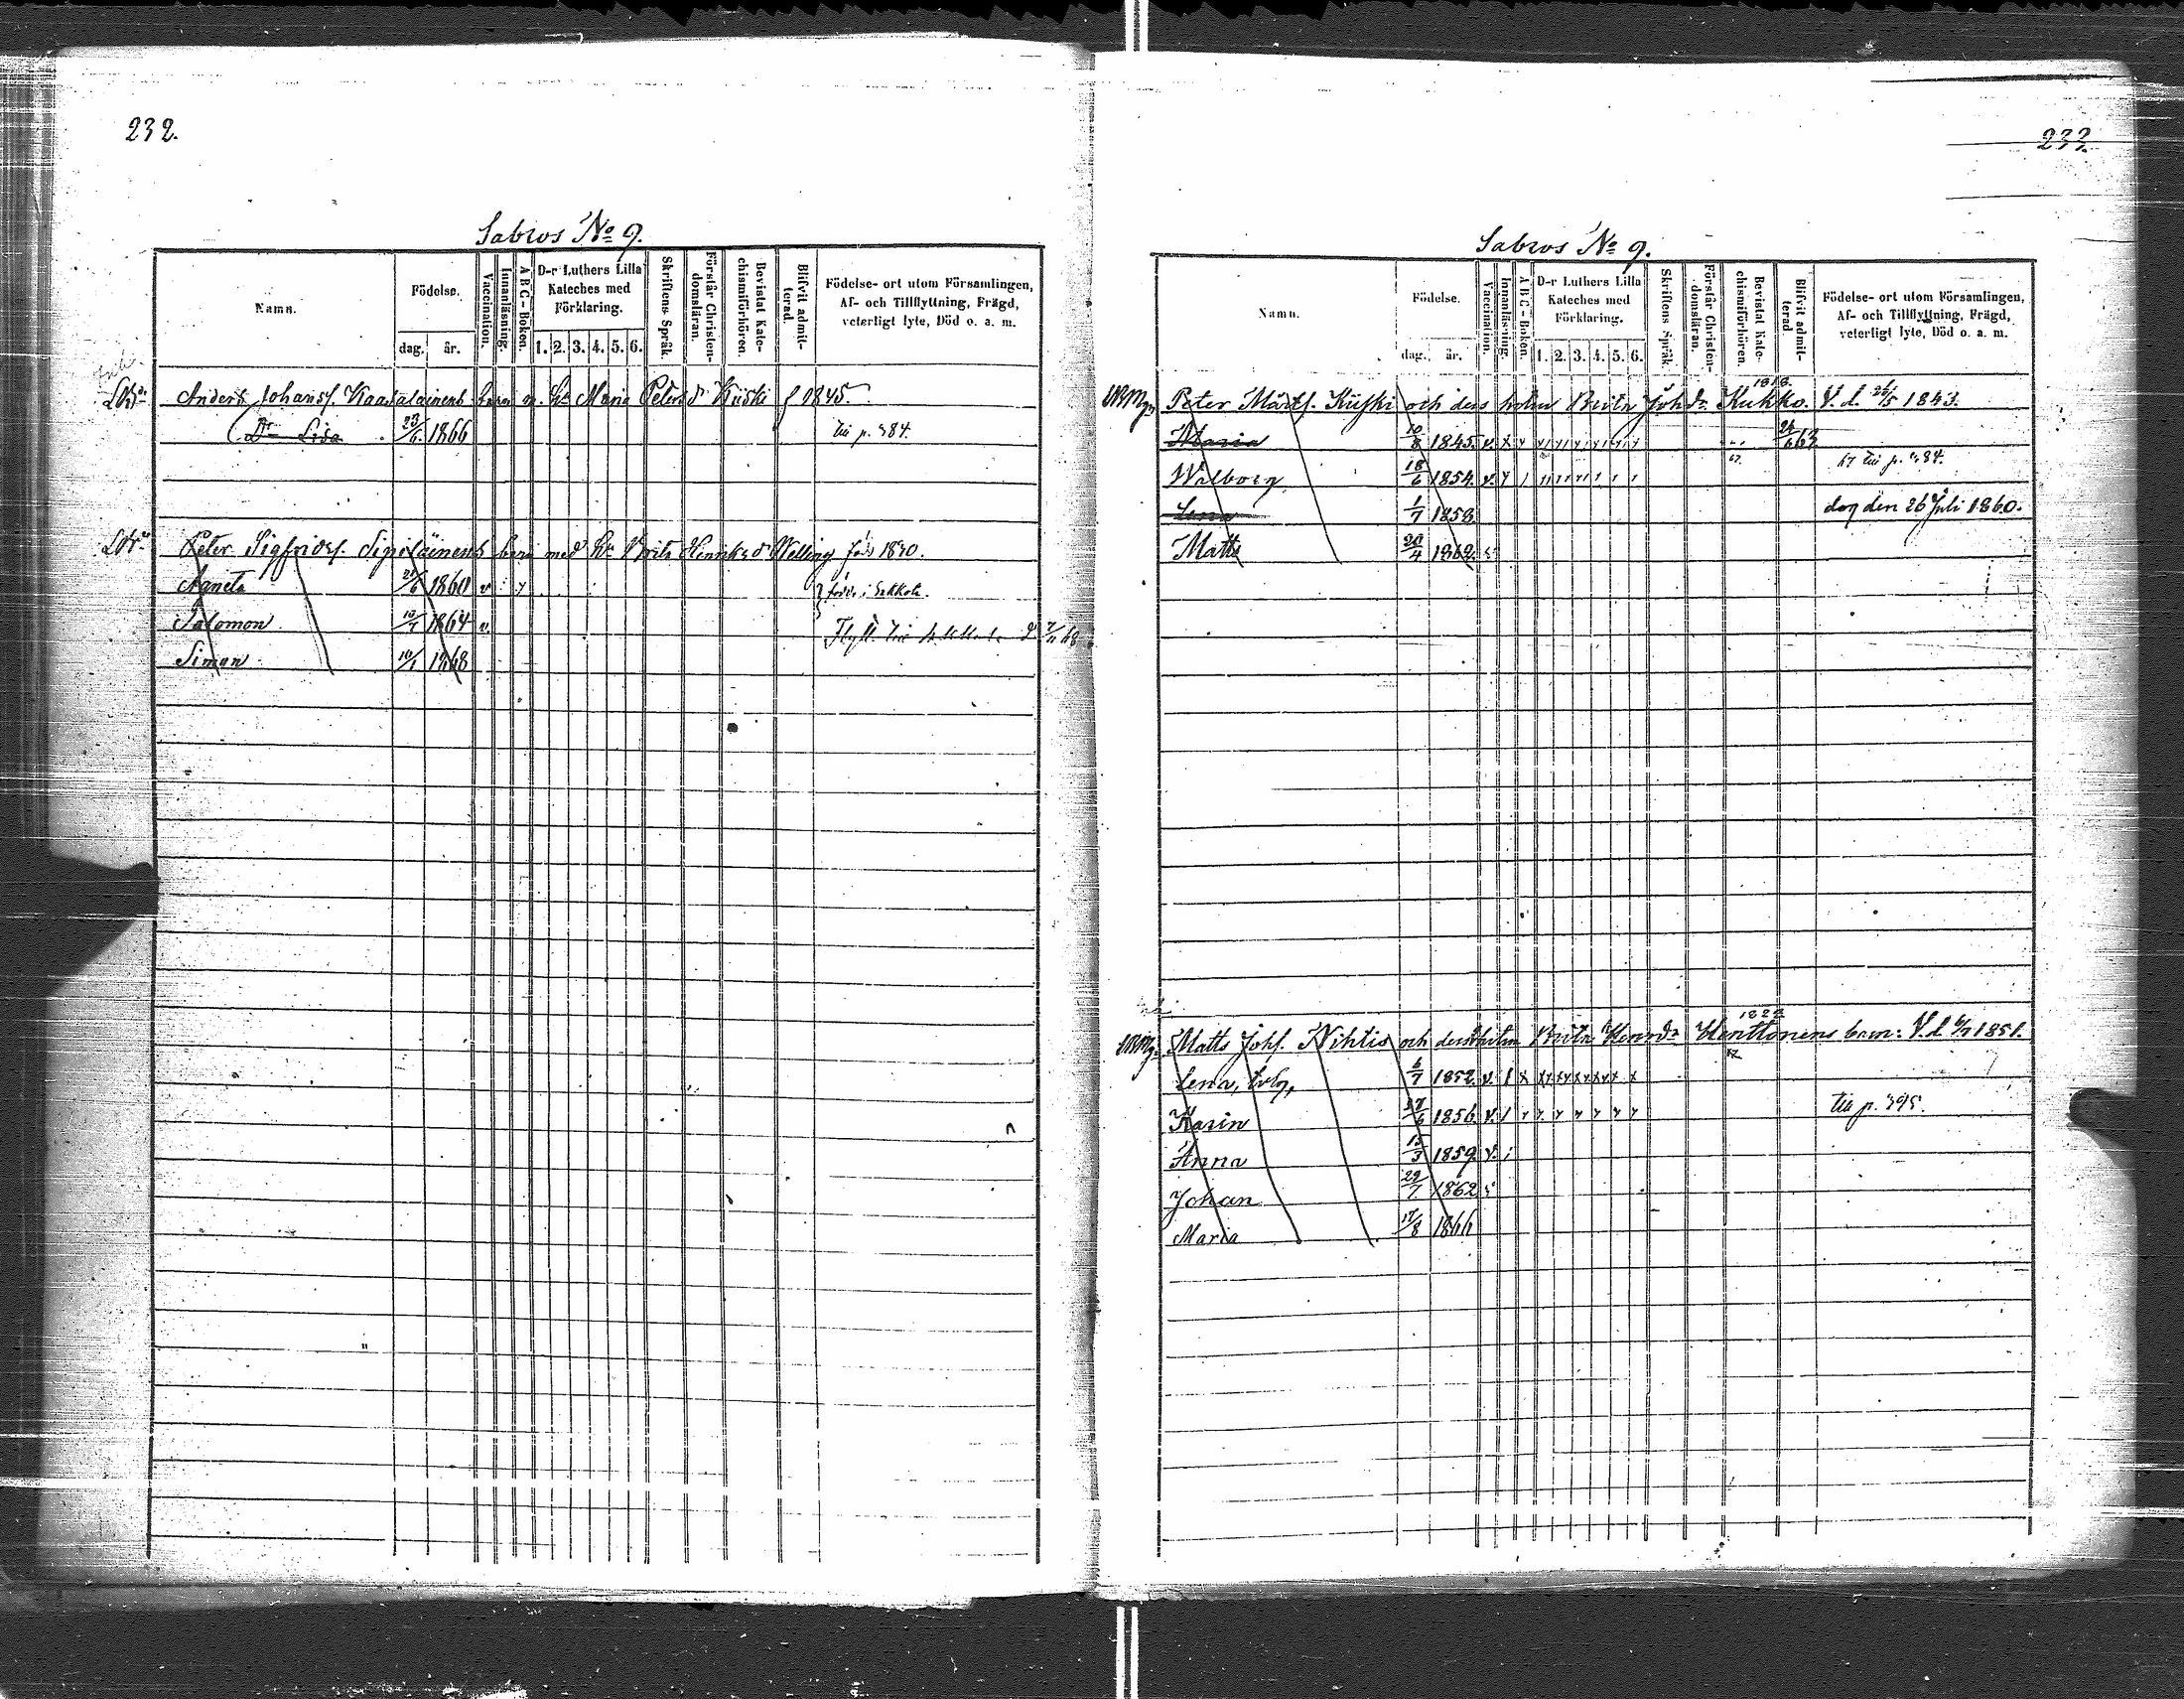 232.
Sabros No 9.
Namn.
Födelse.
dag.
år.
Vaccination.
Innanläsning.
A B C - Boken.
D-r Luthers Lilla
Kateches med
Förklaring.
1. 2. 3. 4. 5. 6.
Skriftens Språk.
Förstår Christen-
domsläran.
Bevistat Kate-
chismiförhören.
Blifvit admit-
terad.
Födelse- ort utom Församlingen,
Af- och Tillflyttning, Frägd,
veterligt lyte, Död o. a. m.
Anders Johans. barn m. Maria Peters dr Kiiski f 1845
Dr Lisa 23/6 1866 till p. 384.
Peter Sigfrids. Sipiläinens barn med Brita Henriks dr Welling född 1830.
Agneta 21/6 1860 v födda i Sakkola.
Salomon 12/7 1864 v.
Flytt. till 2/11 68
Simon 10/1 1868
233.
Sabros No 9.
Namn.
Födelse.
dag.
år.
Vaccination.
Innanläsning.
A B C - Boken.
D-r Luthers Lilla
Kateches med
Förklaring.
1. 2. 3. 4. 5. 6.
Skriftens Språk.
Förstår Christen-
domsläran.
Bevistat Kate-
chismiförhören.
Blifvit admit-
terad
Födelse- ort utom Församlingen,
Af- och Tillflyttning, Frägd,
veterligt lyte, Död o. a. m.
1818.
Peter Mårts. Kiiski och dess Brita Joh dr Kukko. V. d. 26/5 1843.
Maria 10/8 1845. v. 24/6 63
Walborg 18/6 1854. v. 67 till p. 384.
Lena 1/7 1858 dog den 26 Juli 1860.
Matts 20/4 1862.
1822
Matts Johs. Nihtis och dess Brita Henr dr Henttonens barn: V. d. 1851.
Lena, 6/7 1852. v.
Karin 27/6 1856. v. till p. 395.
Anna 15/3 1859. v.
Johan 22/7 1862
Maria 17/8 1866